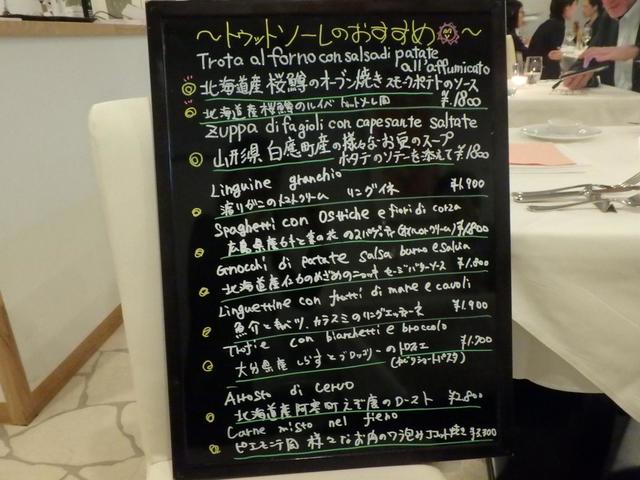 ～トゥットソーレのおすすめ～
Trota al forno con salsa di patate
all'affumicato
◎北海道産 桜鱒のオーブン焼き スモークポテトのソース
¥1800
北海道産桜鱒のルイベ トゥットソーレ風
Zuppa di fagioli con capesante saltate
山形県 白鷹町産の様々なお豆のスープ
ホタテのソテーを添えて ¥1800
Linguine granchio
渡りがにのトマトクリーム リングイネ ¥1,900
Spaghetti con ostriche e fiori di corza
広島県産カキと菜の花のスパゲティ ¥1,800
Gnocchi di patate salsa burro e salvia
北海道産 のニョッキ セージバターソース ¥1,800
Linguettine con frutti di mare e cavoli
魚介と春キャベツ、カラスミのリングエッティーネ ¥1,900
Trofie con bianchetti e broccolo
大分県産 しらすとブロッコリーのトロフィエ ¥1,700
Arrosto di cervo
北海道産阿寒町えぞ鹿のロースト ¥2,800
Carne misto nel fieno
ピエモンテ風 様々なお肉のワラ包み ココット焼き ¥3,300